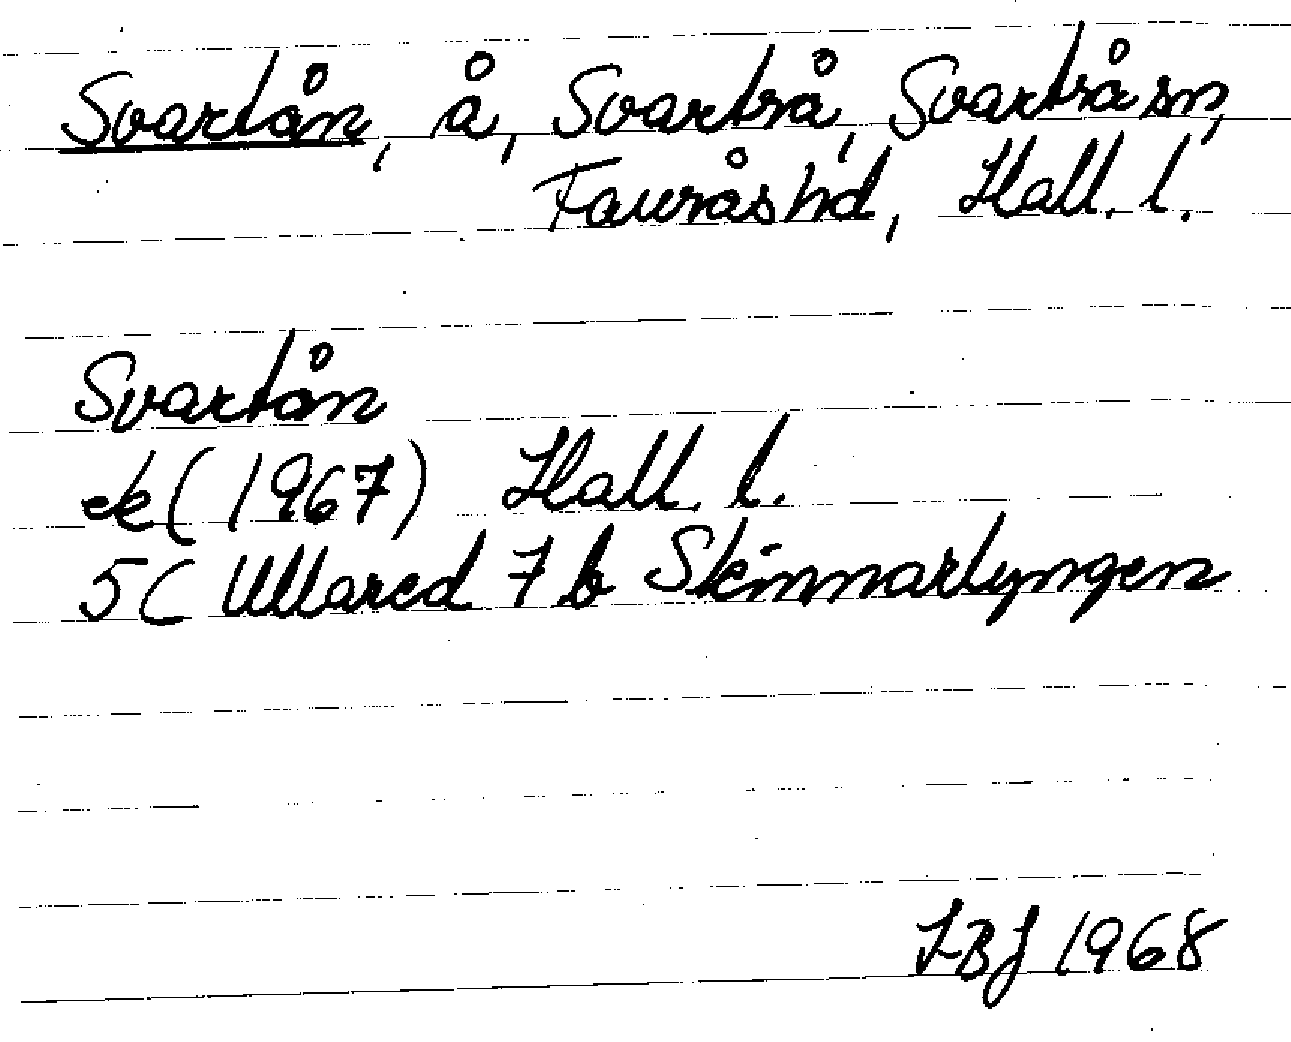 Svartån, å, Svartrå, Svartrå sn,
Faurås hd, Hall. l.
Svartån
ek (1967) Hall. l.
5C Ullared 7 b Skinnarlyngen
LBJ 1968